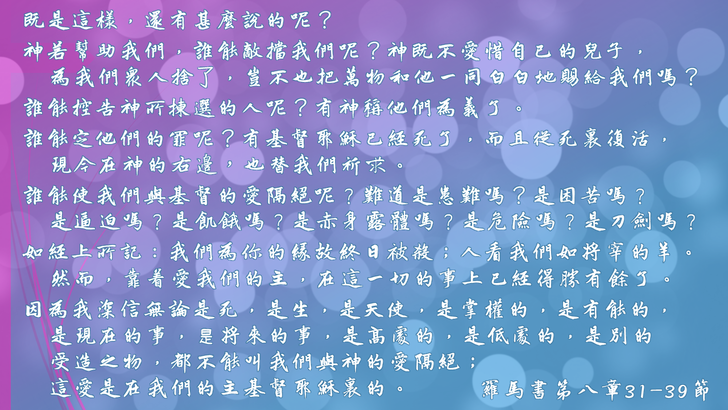 既是這樣，還有甚麼說的呢？
神若幫助我們，誰能敵擋我們呢？神既不愛惜自己的兒子，
為我們眾人捨了，豈不也把萬物和他一同白白地賜給我們嗎？
誰能控告神所揀選的人呢？有神稱他們為義了。
誰能定他們的罪呢？有基督耶穌已經死了，而且從死裏復活，
現今在神的右邊，也替我們祈求。
誰能使我們與基督的愛隔絕呢？難道是患難嗎？是困苦嗎？
是逼迫嗎？是飢餓嗎？是赤身露體嗎？是危險嗎？是刀劍嗎？
如經上所記：我們為你的緣故終日被殺；人看我們如將宰的羊。
然而，靠着愛我們的主，在這一切的事上已經得勝有餘了。
因為我深信無論是死，是生，是天使，是掌權的，是有能的，
是現在的事，是將來的事，是高處的，是低處的，是別的
受造之物，都不能叫我們與神的愛隔絕；
這愛是在我們的主基督耶穌裏的。
羅馬書第八章31-39節